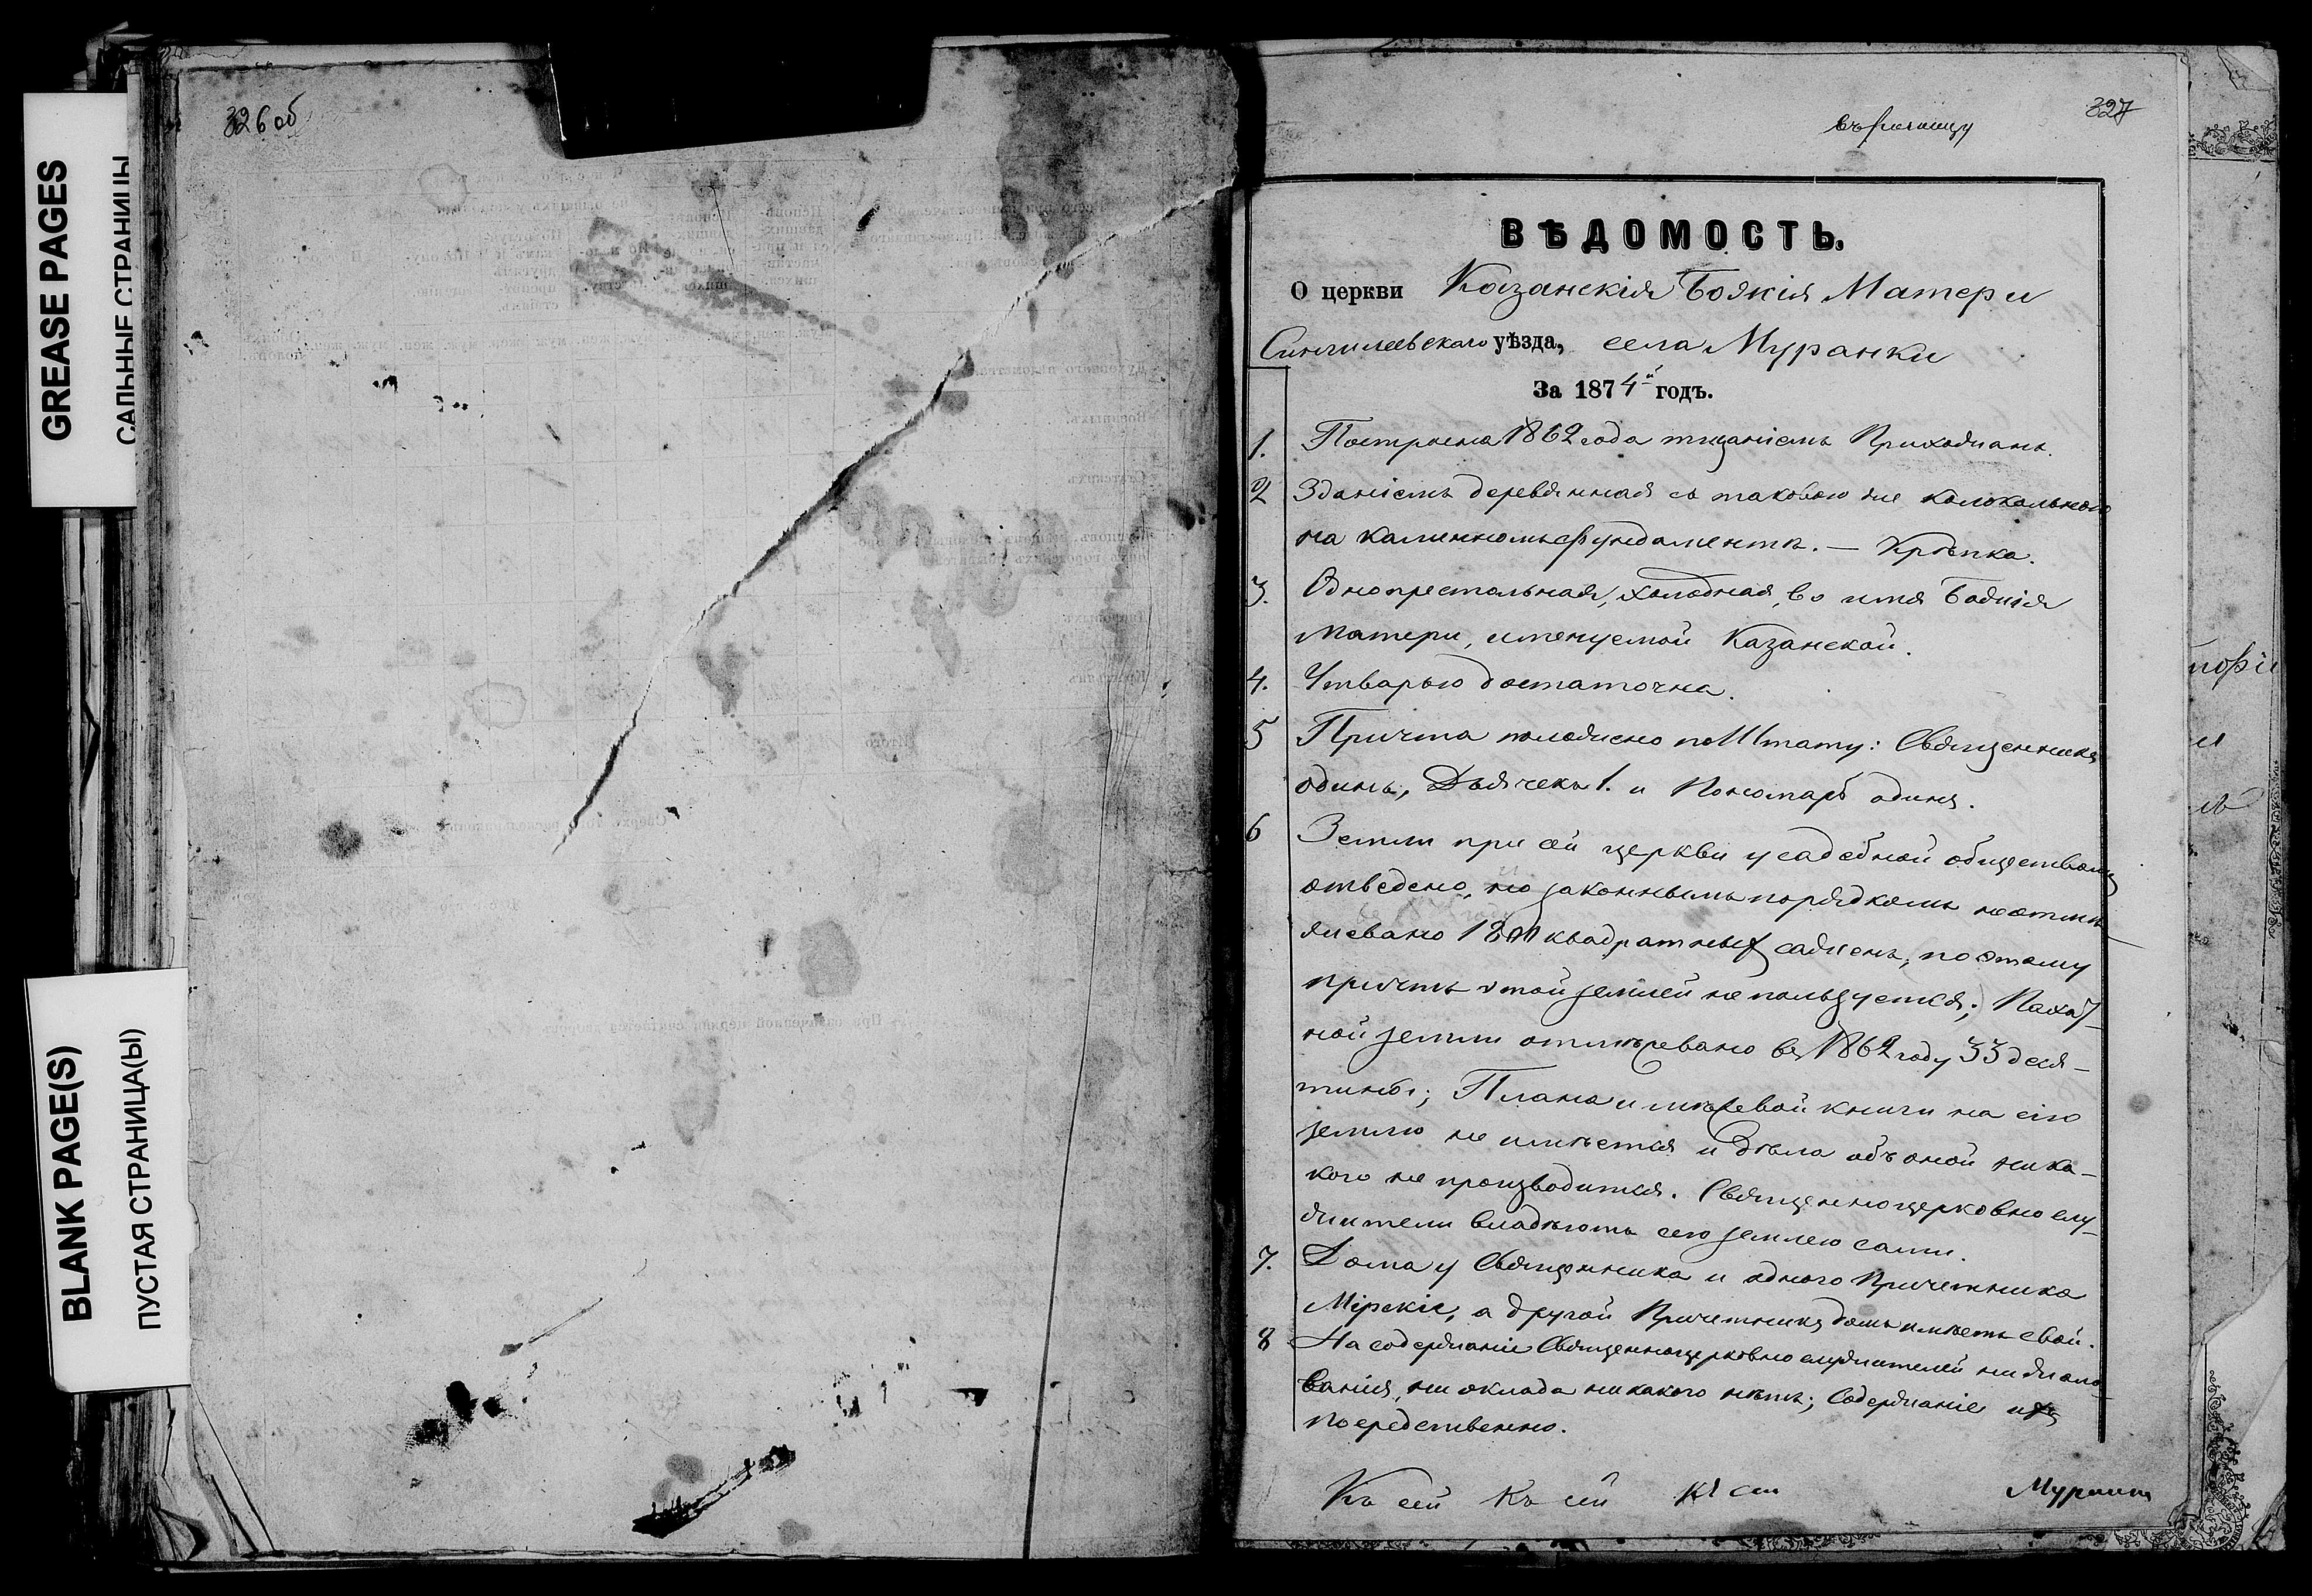 326об
GREASE PAGES
САЛЬНЫЕ СТРАНИЦЫ
BLANK PAGE(S)
ПУСТАЯ СТРАНИЦА(Ы)
327
ВѢДОМОСТЬ.
О церкви Казанскія Божія Матери
Сингилеевскаго уѣзда, села Муранки
За 1874й годъ.
1. Построена 1862 года тщаніемъ Прихожанъ.
2 Зданіемъ деревянная съ таковою же колокольнею
на каменномъ фундаментѣ. — Крѣпка.
3. Однопрестольная, холодная, во имя Божія
Матери, именуемой Казанской.
4. Утварью достаточна.
5 Причта положено по Штату: Священникъ
одинъ, Дьячекъ 1. и Пономарь одинъ.
6 Земли при сей церкви усадебной обществомъ
отведено, но законнымъ порядкомъ не отмѣ-
жевано 1800 квадратныхъ сажень, поэтому
причтъ этой землей не пользуется; Пахат-
ной земли отмѣжевано въ 1862 году 33 деся-
тины; Плана и мѣжевой книги на сію
землю не имѣется и дѣла объ оной ника-
кого не производится. Священноцерковнослу-
жители владѣютъ сею землею сами.
7. Дома у Священника и одного Причетника
Мірскіе, а другой Причетникъ домъ имѣетъ свой.
8 На содержаніе Священноцерковнослужителей ни жало-
ванія, ни оклада никакого нѣтъ; Содержаніе ихъ
посредственно.
Къ сей Къ сей